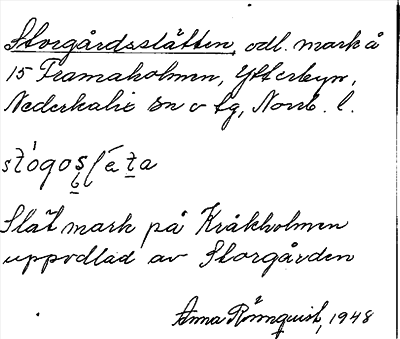 Storgårdsslåtten, odl. mark å
15 Framaholmen, Ytterbyn,
Nederkalix sn o tg, Norrb. l.
Slåt mark på Kråkholmen
uppodlad av Storgården
Anna Rönnquist, 1948